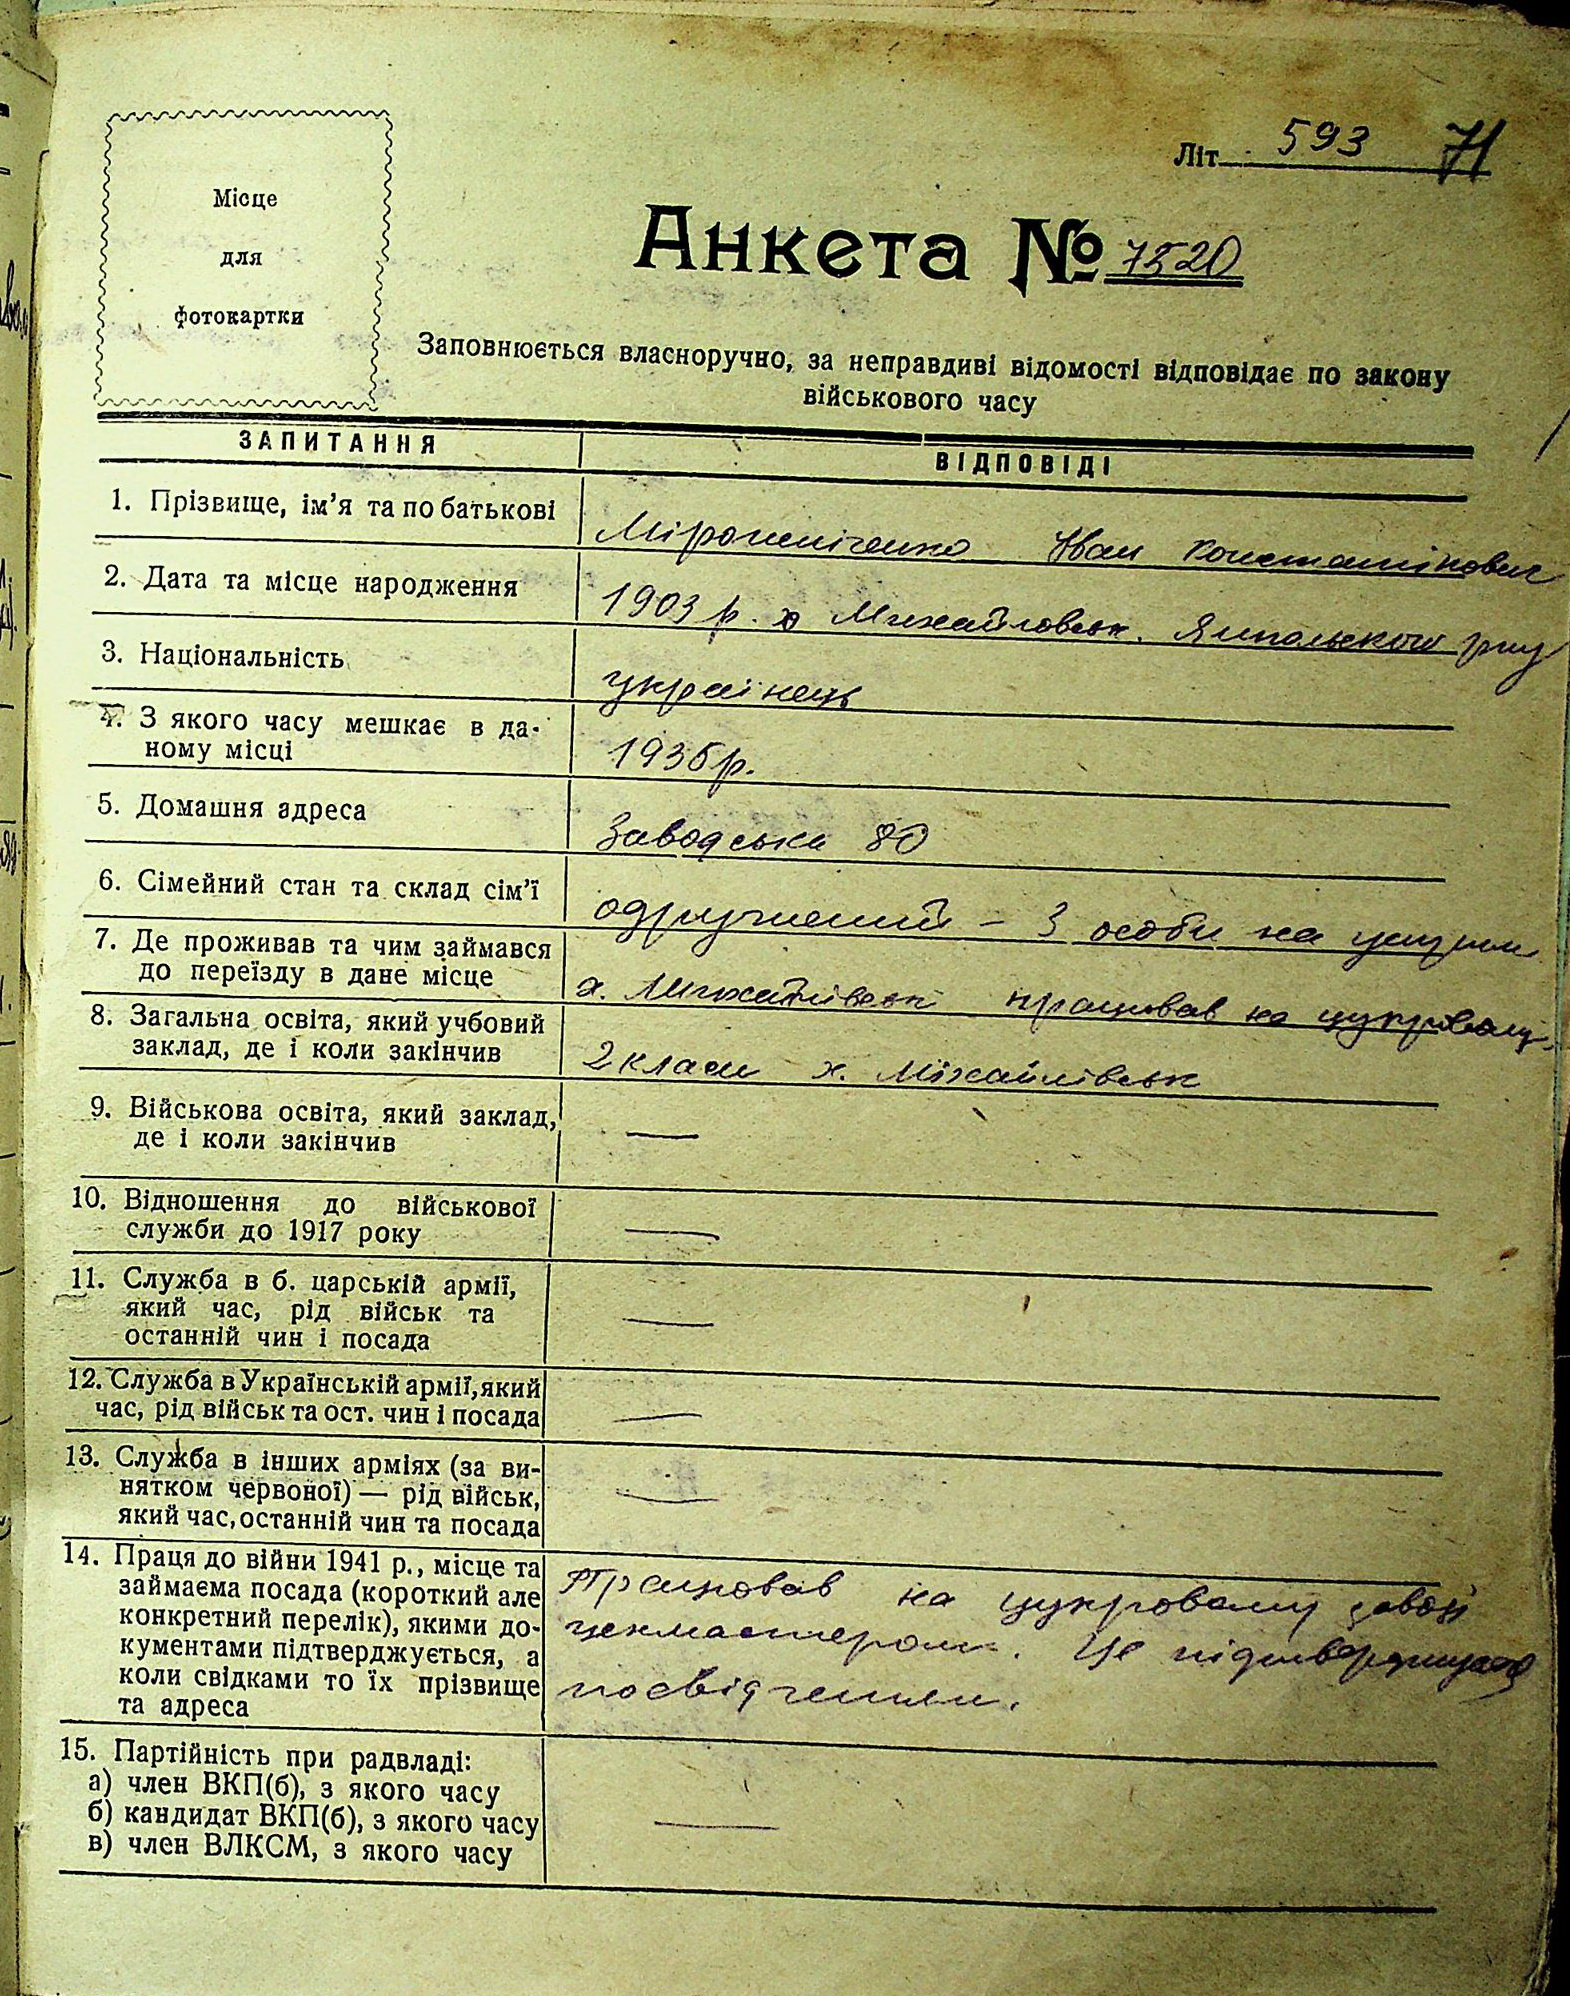 Місце
для
фотокартки
Літ. 593 71
Анкета № 7520
Заповнюється власноручно, за неправдиві відомості відповідає по закону
військового часу
ЗАПИТАННЯ ВІДПОВІДІ
1. Прізвище, ім'я та по батькові
Мірошніченко Іван Константінович
2. Дата та місце народження
1903 р. х Михайловськ. Ямпольского р-ну
3. Національність
українець
4. З якого часу мешкає в да-
ному місці
1936 р.
5. Домашня адреса
Заводська 80
6. Сімейний стан та склад сім'ї
одружений – 3 особи на
7. Де проживав та чим займався
до переїзду в дане місце
х. Михайлівськ працював на цукровому
8. Загальна освіта, який учбовий
заклад, де і коли закінчив
2 класи х. Міхайлівськ
9. Військова освіта, який заклад,
де і коли закінчив
—
10. Відношення до військової
служби до 1917 року
—
11. Служба в б. царській армії,
який час, рід військ та
останній чин і посада
—
12. Служба в Українській армії, який
час, рід військ та ост. чин і посада
—
13. Служба в інших арміях (за ви-
нятком червоної) — рід військ,
який час, останній чин та посада
—
14. Праця до війни 1941 р., місце та
займаєма посада (короткий але
конкретний перелік), якими до-
кументами підтверджується, а
коли свідками то їх прізвище
та адреса
Працював на цукровому заводі
цехмастером. Це підтверджує
посвідчення.
15. Партійність при радвладі:
а) член ВКП(б), з якого часу
б) кандидат ВКП(б), з якого часу
в) член ВЛКСМ, з якого часу
—